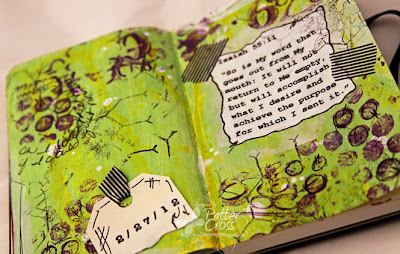 Isaiah 55:11
"So is My word that
goes out from My
mouth: It will not
return to Me empty,
but will accomplish
what I desire and
achieve the purpose
for which I sent it."
2/27/12
Patter
Cross